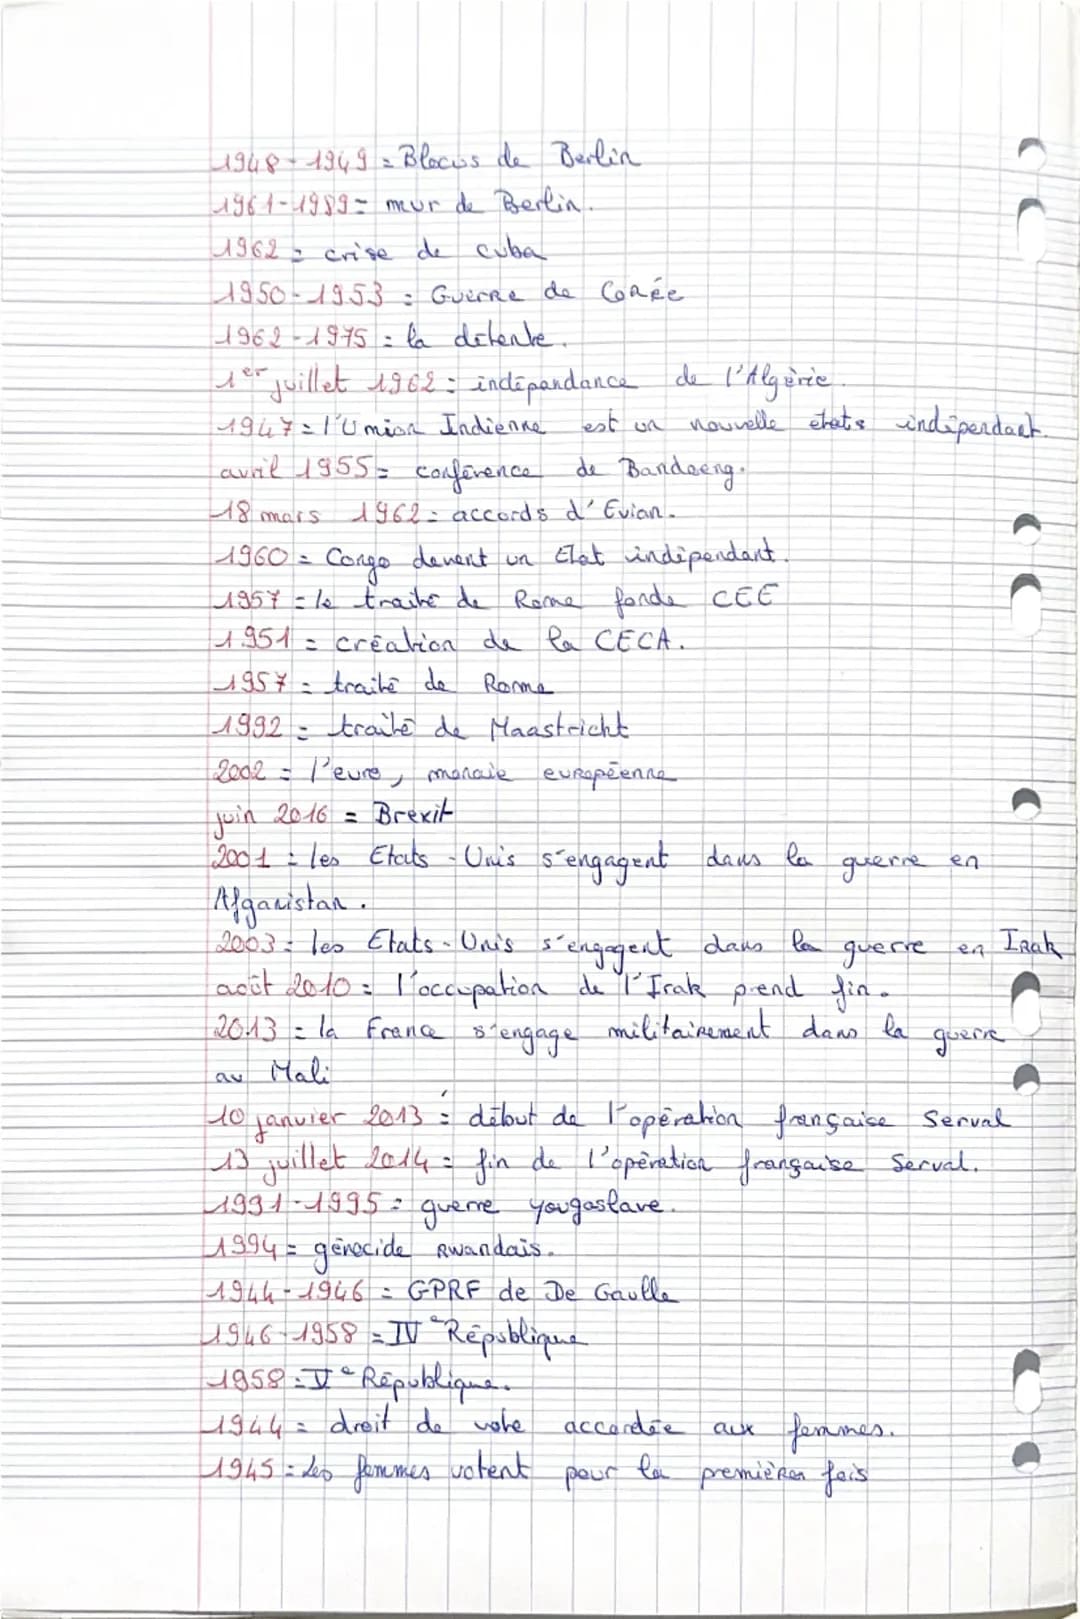 1948-1949 = Blocus de Berlin
1961-1989 = mur de Berlin.
1962 = crise de cuba
1950-1953 = Guerre de Corée
1962-1975 = la détente.
1er juillet 1962 = indépendance de l'Algérie.
1947 = l'Union Indienne est un nouvelle états indépendant.
avril 1955 = conférence de Bandoeng.
18 mars 1962 = accords d'Evian.
1960 = Congo devent un Etat indépendant.
1957 = le traité de Rome fonde CEE
1951 = création de la CECA.
1957 = traité de Rome
1992 = traité de Maastricht
2002 = l'euro, monaie européenne
juin 2016 = Brexit
2001 = les Etats-Unis s'engagent dans la guerre en
Afganistan.
2003 = les Etats-Unis s'engagent dans la guerre en Irak
août 2010 = l'occupation de l'Irak prend fin.
2013 = la France s'engage militairement dans la guerre
au Mali
10 janvier 2013 = début de l'opération française Serval
13 juillet 2014 = fin de l'opération française Serval.
1991-1995 = guerre yougoslave.
1994 = génocide Rwandais.
1944-1946 = GPRF de De Gaulle
1946-1958 = IVe République
1958 = Ve République.
1944 = droit de vote accordée aux femmes.
1945 = Les femmes votent pour la premièren fois